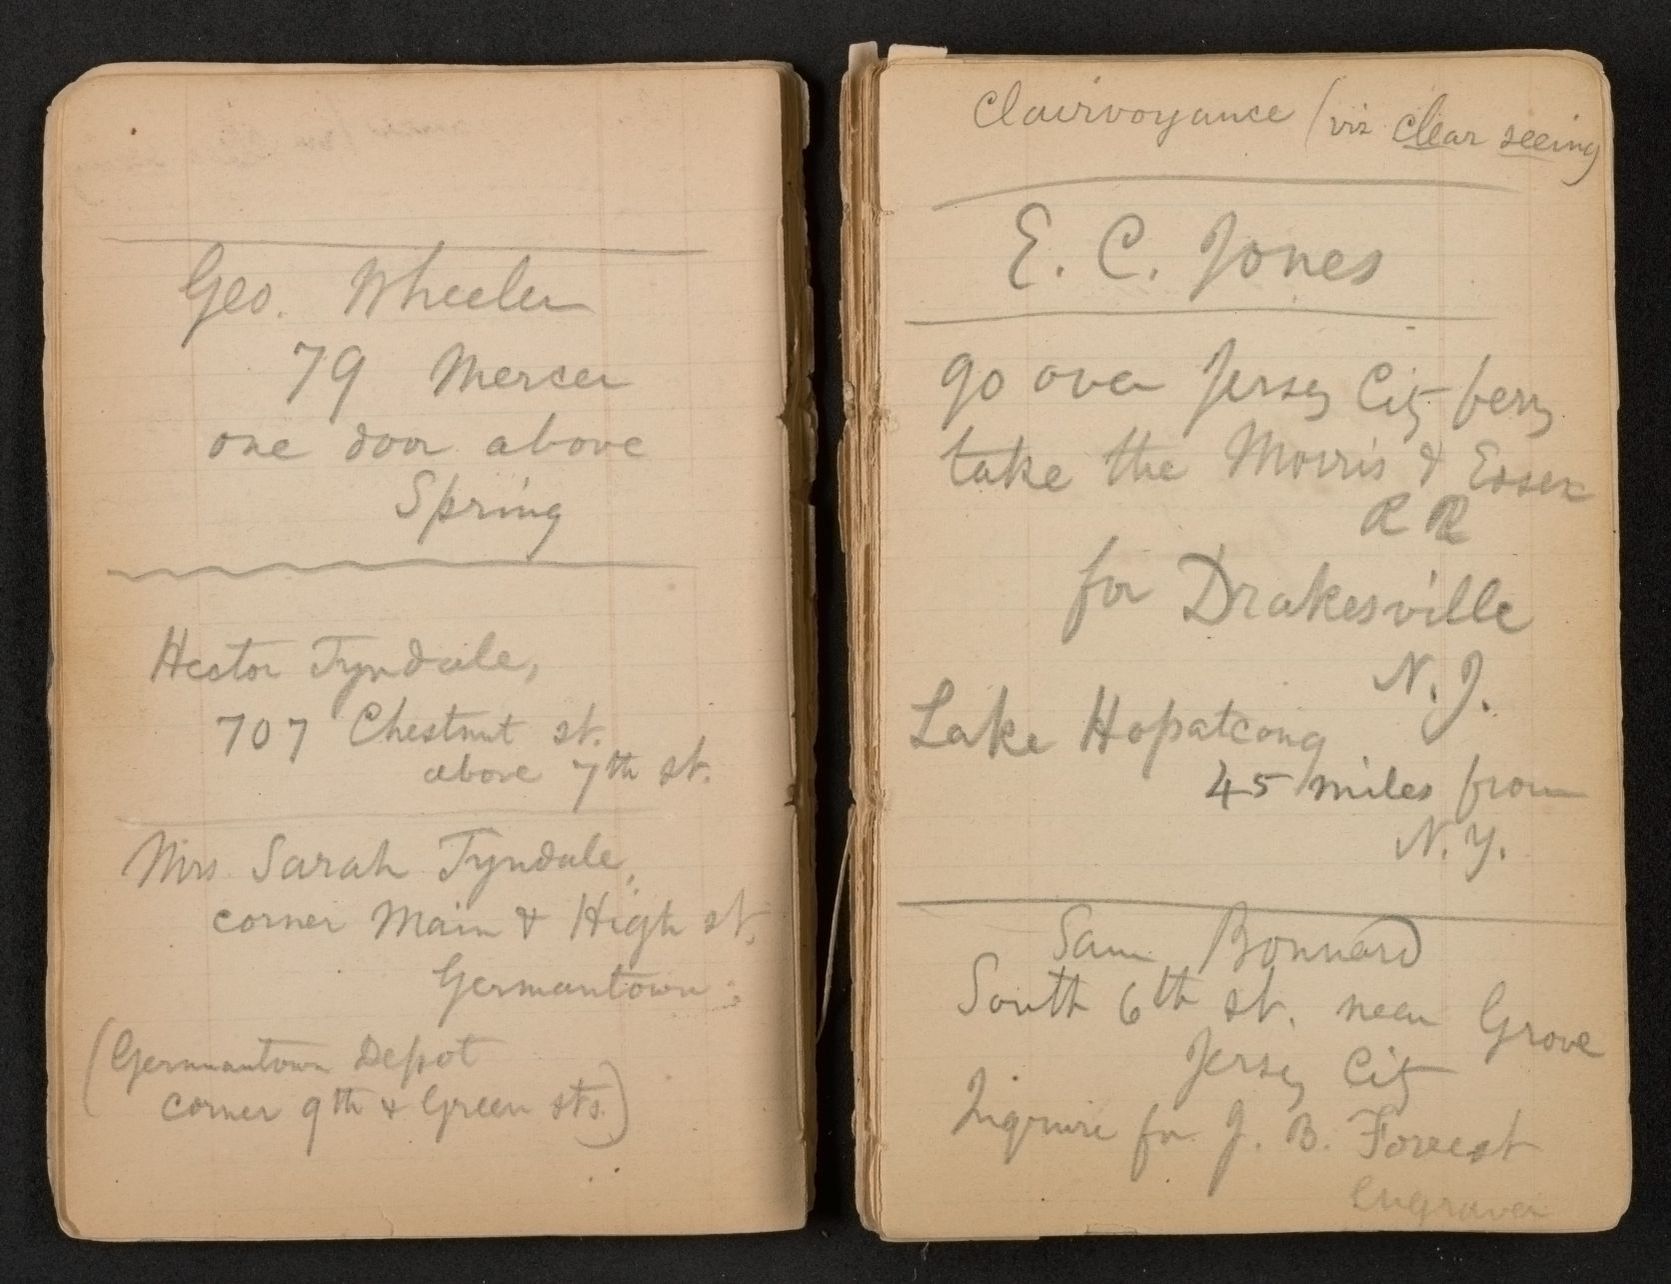 Geo. Wheeler
79 Mercer
one door above
Spring
Hector Tyndale,
707 Chestnut st.
above 7th st.
Mrs. Sarah Tyndale,
corner Main & High st.
Germantown.
(Germantown Depot
corner 9th & Green sts.)
Clairvoyance (viz clear seeing)
E. C. Jones
go over Jersey City ferry
take the Morris & Essex
R R
for Drakesville
N. J.
Lake Hopatcong
45 miles from
N. Y.
Sam Bonnard
South 6th st. near Grove
Jersey City
Inquire for J. B. Forrest
engraver